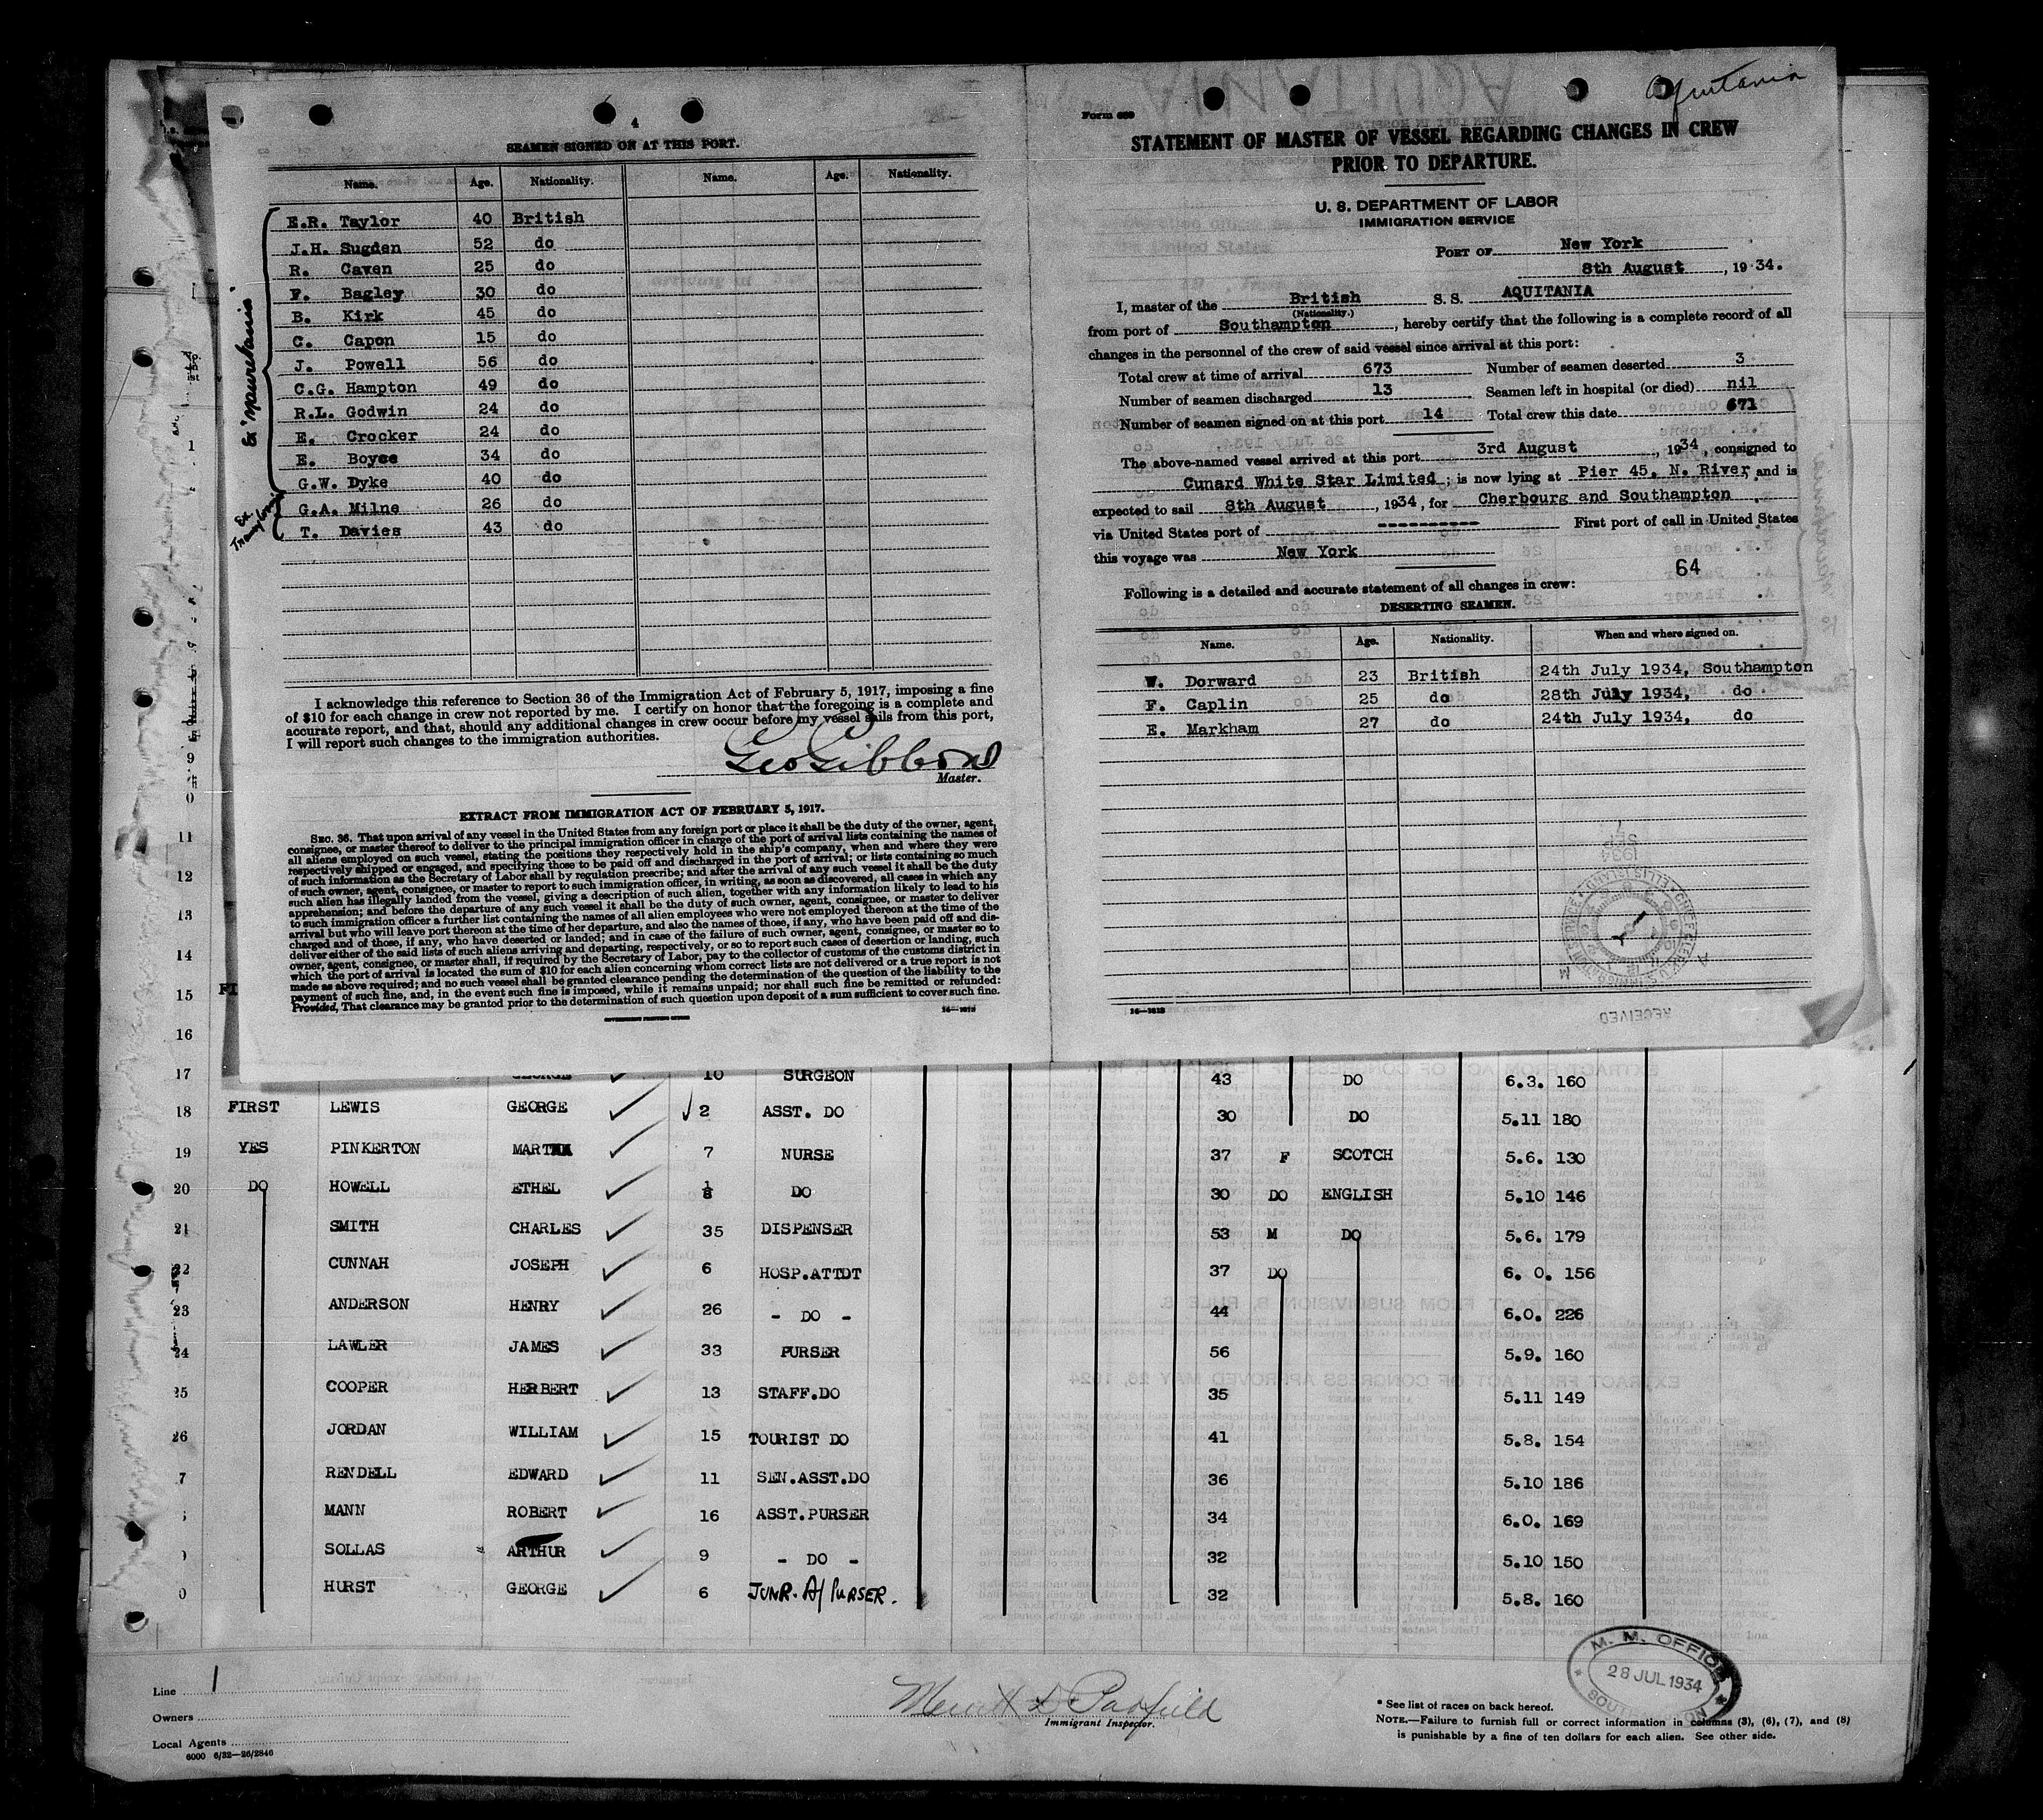 4
SEAMEN SIGNED ON AT THIS PORT.
Name. Age. Nationality. Name. Age. Nationality.
E.R. Taylor 40 British
J.H. Sugden 52 do
R. Caven 25 do
F. Bagley 30 do
B. Kirk 45 do
C. Capon 15 do
J. Powell 56 do
C.G. Hampton 49 do
R.L. Godwin 24 do
E. Crocker 24 do
E. Boyce 34 do
G.W. Dyke 40 do
G.A. Milne 26 do
T. Davies 43 do
I acknowledge this reference to Section 36 of the Immigration Act of February 5, 1917, imposing a fine
of $10 for each change in crew not reported by me. I certify on honor that the foregoing is a complete and
accurate report, and that, should any additional changes in crew occur before my vessel sails from this port,
I will report such changes to the immigration authorities.
Geo Gibbons
Master.
EXTRACT FROM IMMIGRATION ACT OF FEBRUARY 5, 1917.
SEC. 36. That upon arrival of any vessel in the United States from any foreign port or place it shall be the duty of the owner, agent,
consignee, or master thereof to deliver to the principal immigration officer in charge of the port of arrival lists containing the names of
all aliens employed on such vessel, stating the positions they respectively hold in the ship's company, when and where they were
respectively shipped or engaged, and specifying those to be paid off and discharged in the port of arrival; or lists containing so much
of such information as the Secretary of Labor shall by regulation prescribe; and after the arrival of any such vessel it shall be the duty
of such owner, agent, consignee, or master to report to such immigration officer, in writing, as soon as discovered, all cases in which any
such alien has illegally landed from the vessel, giving a description of such alien, together with any information likely to lead to his
apprehension; and before the departure of any such vessel it shall be the duty of such owner, agent, consignee, or master to deliver
to such immigration officer a further list containing the names of all alien employees who were not employed thereon at the time of the
arrival but who will leave port thereon at the time of her departure, and also the names of those, if any, who have been paid off and dis-
charged and of those, if any, who have deserted or landed; and in case of the failure of such owner, agent, consignee, or master so to
deliver either of the said lists of such aliens arriving and departing, respectively, or so to report such cases of desertion or landing, such
owner, agent, consignee, or master shall, if required by the Secretary of Labor, pay to the collector of customs of the customs district in
which the port of arrival is located the sum of $10 for each alien concerning whom correct lists are not delivered or a true report is not
made as above required; and no such vessel shall be granted clearance pending the determination of the question of the liability to the
payment of such fine, and, in the event such fine is imposed, while it remains unpaid; nor shall such fine be remitted or refunded:
Provided, That clearance may be granted prior to the determination of such question upon deposit of a sum sufficient to cover such fine.
GOVERNMENT PRINTING OFFICE
Aquitania
STATEMENT OF MASTER OF VESSEL REGARDING CHANGES IN CREW
PRIOR TO DEPARTURE.
U. S. DEPARTMENT OF LABOR
IMMIGRATION SERVICE
PORT OF New York
8th August, 1934.
I, master of the British S. S. AQUITANIA
(Nationality.)
from port of Southampton, hereby certify that the following is a complete record of all
changes in the personnel of the crew of said vessel since arrival at this port:
Total crew at time of arrival 673 Number of seamen deserted 3
Number of seamen discharged 13 Seamen left in hospital (or died) nil
Number of seamen signed on at this port 14 Total crew this date 671
The above-named vessel arrived at this port 3rd August, 1934, consigned to
Cunard White Star Limited; is now lying at Pier 45, N. River, and is
expected to sail 8th August, 1934, for Cherbourg and Southampton
via United States port of ---------- First port of call in United States
this voyage was New York
64
Following is a detailed and accurate statement of all changes in crew:
DESERTING SEAMEN.
Name. Age. Nationality. When and where signed on.
W. Dorward 23 British 24th July 1934, Southampton
F. Caplin 25 do 28th July 1934, do
E. Markham 27 do 24th July 1934, do
17 GEORGE 10 SURGEON 43 DO 6.3. 160
18 FIRST LEWIS GEORGE 2 ASST. DO 30 DO 5.11 180
19 YES PINKERTON MARTHA 7 NURSE 37 F SCOTCH 5.6. 130
20 DO HOWELL ETHEL DO 30 DO ENGLISH 5.10 146
21 SMITH CHARLES 35 DISPENSER 53 M DO 5.6. 179
22 CUNNAH JOSEPH 6 HOSP.ATTDT 37 DO 6. 0. 156
23 ANDERSON HENRY 26 - DO - 44 6.0. 226
24 LAWLER JAMES 33 PURSER 56 5.9. 160
25 COOPER HERBERT 13 STAFF.DO 35 5.11 149
26 JORDAN WILLIAM 15 TOURIST DO 41 5.8. 154
7 RENDELL EDWARD 11 SEN.ASST.DO 36 5.10 186
MANN ROBERT 16 ASST.PURSER 34 6.0. 169
SOLLAS ARTHUR 9 - DO - 32 5.10 150
0 HURST GEORGE 6 JUNR. A/PURSER. 32 5.8. 160
Line 1
Owners
Local Agents
6000 6/32—26/2846
Merritt D Padfield
Immigrant Inspector.
M. M. OFFICE
28 JUL 1934
* See list of races on back hereof.
NOTE.—Failure to furnish full or correct information in columns (3), (6), (7), and (8)
is punishable by a fine of ten dollars for each alien. See other side.